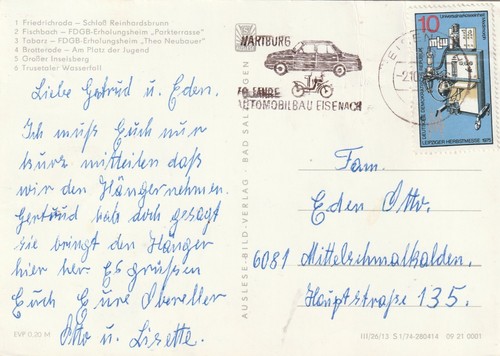 1 Friedrichroda – Schloß Reinhardsbrunn
2 Fischbach – FDGB-Erholungsheim „Parkterrasse“
3 Tabarz – FDGB-Erholungsheim „Theo Neubauer“
4 Brotterode – Am Platz der Jugend
5 Großer Inselsberg
6 Trusetaler Wasserfall
Liebe Gertrud u. Eden.
Ich muß Euch nur
kurz mitteilen daß
wir den Hänger nehmen.
Gertrud hab doch gesagt
sie bringt den Hänger
hier her. Es grüßen
Euch Eure Obereller
Otto u. Lisette.
EVP 0,20 M
AUSLESE-BILD-VERLAG · BAD SALZUNGEN
WARTBURG
JAHRE
AUTOMOBILBAU EISENACH
EISEN
10
DEUTSCHE DEMOKRATISCHE REPUBLIK
LEIPZIGER HERBSTMESSE 1975
Fam.
Eden Otto.
6081 Mittelschmalkalden.
Hauptstraße 135.
III/26/13 S 1/74-280414 09 21 0001